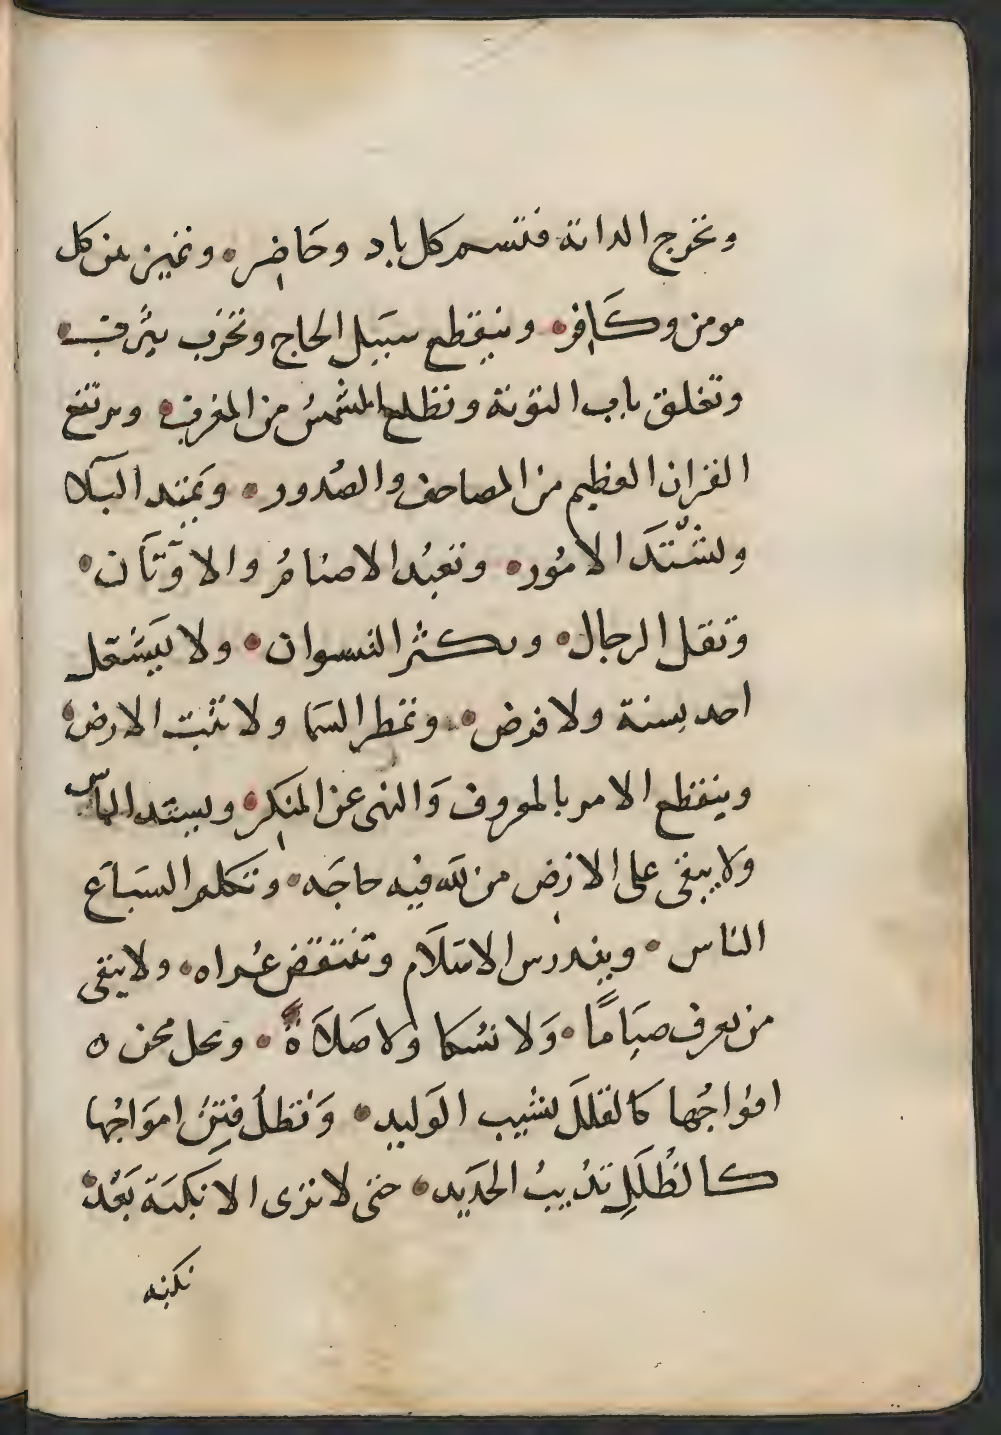 وتخرج الدابة فتسم كل باد وحَاضِر • وتميز بين كل
مومن وكَافر • وينقطع سَبيل الحاج وتخرب يثرب •
وتغلق باب التوبة وتطلع الشمسُ من المغرب • ويرتفع
القران العظيم من المصاحف والصُدور • ويَمتد البَلا
وتشتَدّ الامُور • وتعبُد الاصنامُ والاوثَان •
وتقل الرجال • ويكثر النسوان • ولا يَشتغل
احد بسنة ولا فرض • وتمطر السَما ولا تنبت الارض •
وينقطع الامر بالمعروف وَالنهى عن المنكر • ويشتد الباس
وَلا يبقى على الارض من لله فيه حاجَه • وتتكلم السبَاع
الناس • ويندرس الاسَلام وتنتقض عُراه • ولا يبقى
من يعرف صيَامًا • وَلا نسُكا ولا صَلاَةً • وتحل محن ٥
امْواجُها كالقلل تشيب الوَليد • وَتُظلُ فِتَن امَواجُها
كالظُلَلِ تذيبُ الحَديد • حتى لا تَرى الا نَكبَة بَعْد
نكبه